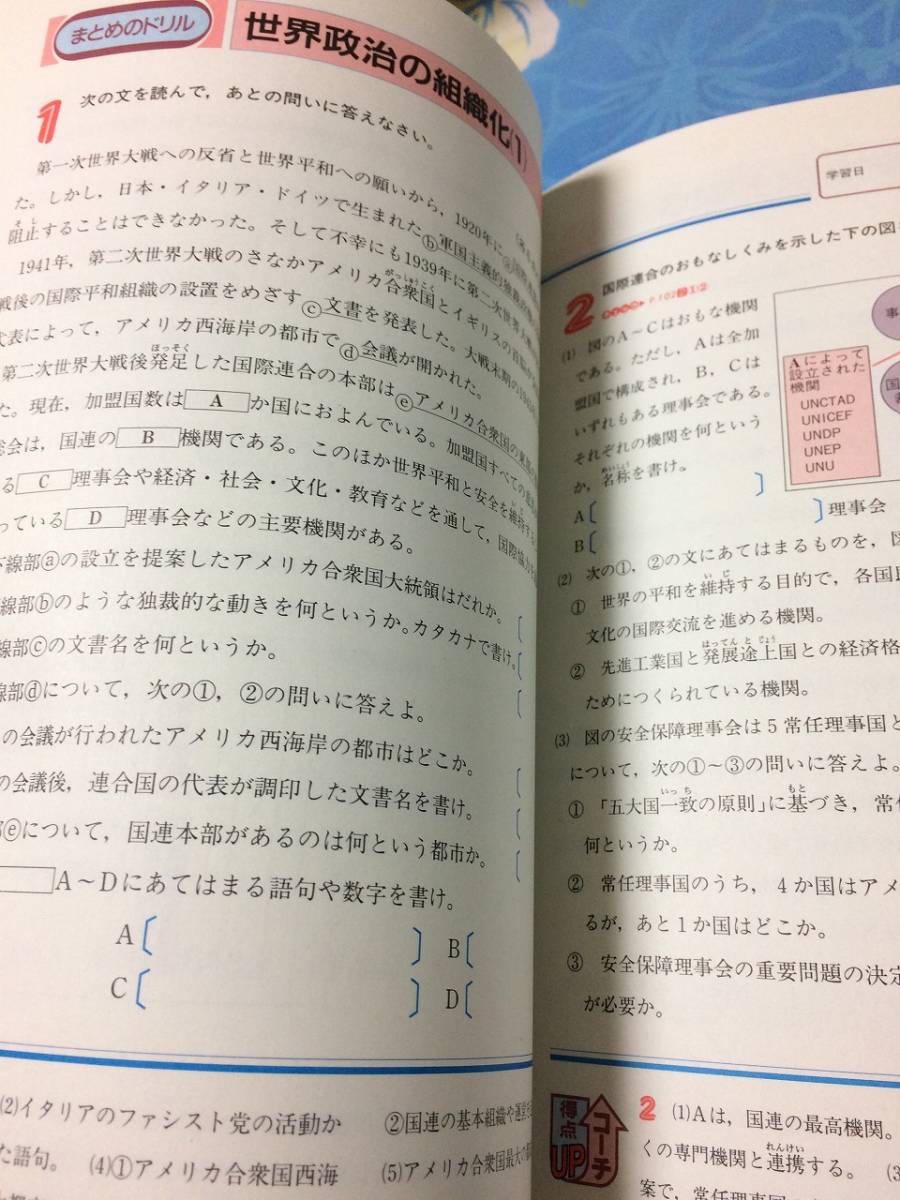 まとめのドリル
世界政治の組織化(1)
1 次の文を読んで，あとの問いに答えなさい。
第一次世界大戦への反省と世界平和への願いから，1920年に
た。しかし，日本・イタリア・ドイツで生まれたⓑ軍国主義的・独裁的
阻止することはできなかった。そして不幸にも1939年に第二次世界大
1941年，第二次世界大戦のさなかアメリカ合衆国とイギリスの首脳が
戦後の国際平和組織の設置をめざすⓒ文書を発表した。大戦末期の1945
代表によって，アメリカ西海岸の都市でⓓ会議が開かれた。
第二次世界大戦後発足した国際連合の本部はⓔアメリカ合衆国の東部の
た。現在，加盟国数は A か国におよんでいる。加盟国すべての
総会は，国連の B 機関である。このほか世界平和と安全を維持する
る C 理事会や経済・社会・文化・教育などを通して，国際協力を
っている D 理事会などの主要機関がある。
下線部ⓐの設立を提案したアメリカ合衆国大統領はだれか。
線部ⓑのような独裁的な動きを何というか。カタカナで書け。
線部ⓒの文書名を何というか。
線部ⓓについて，次の①，②の問いに答えよ。
の会議が行われたアメリカ西海岸の都市はどこか。
の会議後，連合国の代表が調印した文書名を書け。
部ⓔについて，国連本部があるのは何という都市か。
A～Dにあてはまる語句や数字を書け。
A〔 〕B〔
C〔 〕D〔
(2)イタリアのファシスト党の活動か
た語句。 (4)①アメリカ合衆国西海
②国連の基本組織や運営
(5)アメリカ合衆国最大の
学習日
2 国際連合のおもなしくみを示した下の図
P.102 2 1 2
(1) 図のA～Cはおもな機関
である。ただし，Aは全加
盟国で構成され，B，Cは
いずれもある理事会である。
それぞれの機関を何という
か，名称を書け。
A〔 〕
B〔 〕理事会
事
国
Aによって
設立された
機関
UNCTAD
UNICEF
UNDP
UNEP
UNU
(2) 次の①，②の文にあてはまるものを，図
① 世界の平和を維持する目的で，各国民
文化の国際交流を進める機関。
② 先進工業国と発展途上国との経済格
ためにつくられている機関。
(3) 図の安全保障理事会は5常任理事国と
について，次の①～③の問いに答えよ。
① 「五大国一致の原則」に基づき，常
何というか。
② 常任理事国のうち，4か国はアメ
るが，あと1か国はどこか。
③ 安全保障理事会の重要問題の決定
が必要か。
得点UPコーチ
2 (1)Aは，国連の最高機関。
くの専門機関と連携する。 (3
案で，常任